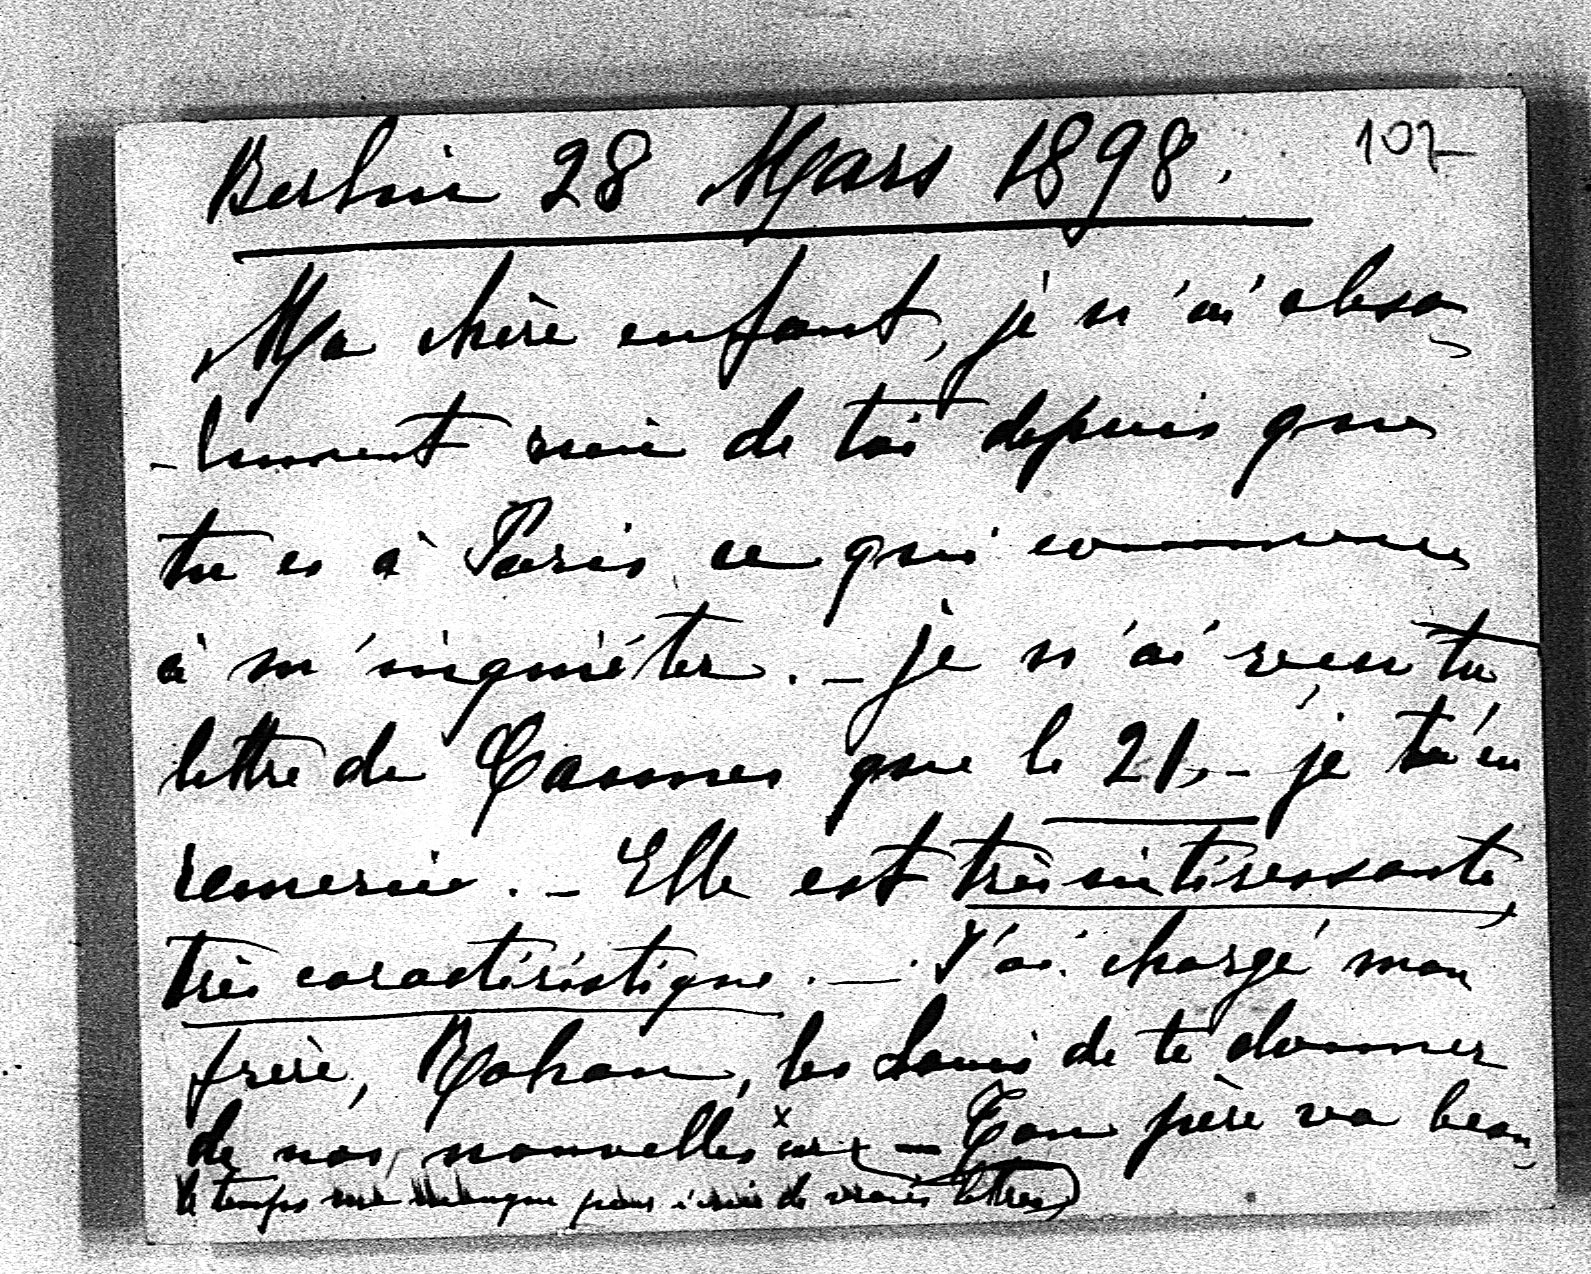 Berlin 28 Mars 1898. 107
Ma chère enfant, je n'ai abso
-lument rien de toi depuis que
tu es à Paris ce qui commence
à m'inquiéter. – je n'ai reçu ta
lettre de Cannes que le 21, – je t'en
remercie. – Elle est très intéressante,
très caractéristique. – J'ai chargé mon
frère, Rohan, les Louis de te donner
de nos nouvelles x car – Ton père va beau
le temps me manque pour écrire de vraies lettres)